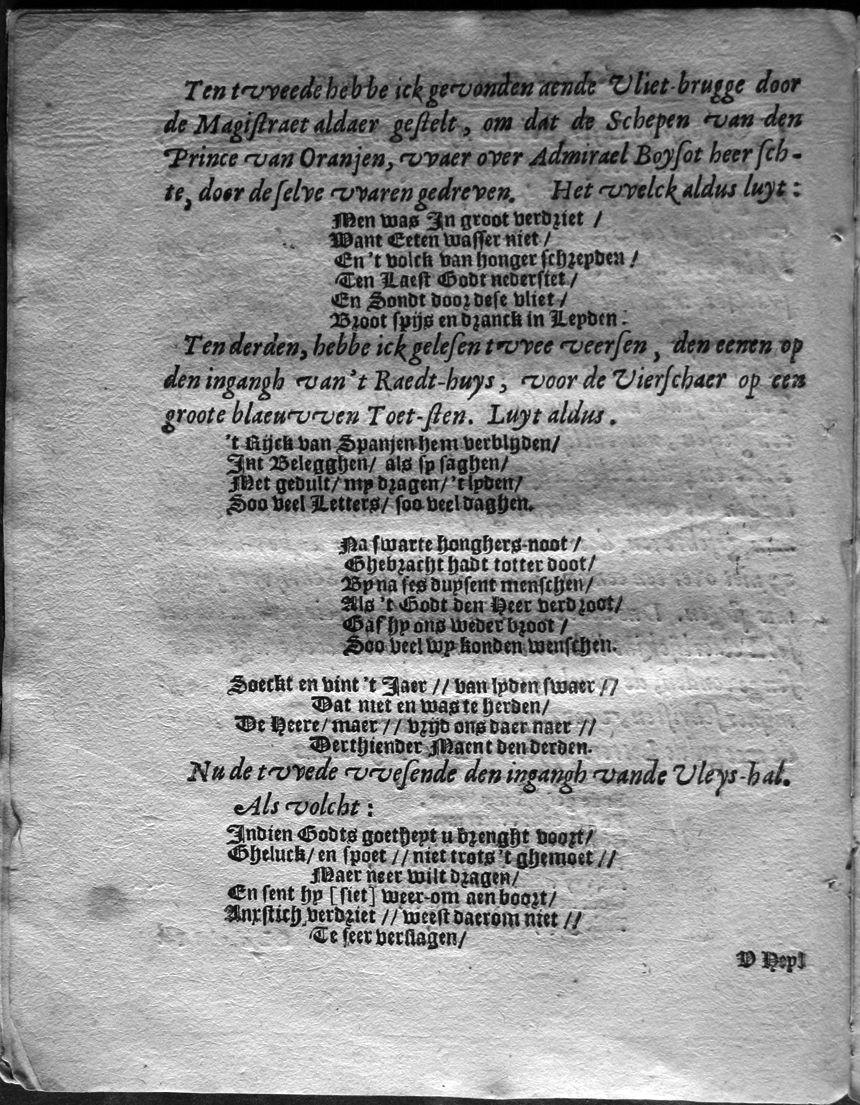 Ten tvveede hebbe ick gevonden aende Vliet-brugge door
de Magistraet aldaer gestelt, om dat de Schepen van den
Prince van Oranjen, vvaer over Admirael Boysot heersch-
te, door de selve vvaren gedreven. Het vvelck aldus luyt:
Men was In groot verdriet /
Want Eeten wasser niet /
En 't volck van honger schreyden /
Ten Laest Godt nedersiet /
En Sondt door dese vliet /
Broot spijs en dranck in Leyden.
Ten derden, hebbe ick gelesen tvvee veersen, den eenen op
den ingangh van 't Raedt-huys, voor de Vierschaer op een
groote blaeuvven Toet-sten. Luyt aldus.
't Rijck van Spanjen hem verblyden/
Int Belegghen/ als sy saghen/
Met gedult/ my dragen/ 't lyden/
Soo veel Letters/ soo veel daghen.
Na swarte honghers-noot /
Ghebracht hadt totter doot/
By na ses duysent menschen/
Als 't Godt den Heer verdroot/
Gaf hy ons weder broot /
Soo veel wy konden wenschen.
Soeckt en vint 't Jaer // van lyden swaer //
Dat niet en was te herden/
De Heere/ maer // vrijd ons daer naer //
Derthiender Maent den derden.
Nu de tvvede vvesende den ingangh vande Vleys-hal.
Als volcht:
Indien Godts goetheyt u brenght voort/
Gheluck/ en spoet // niet trots 't ghemoet //
Maer neer wilt dragen/
En sent hy [siet] weer-om aen boort/
Anxstich verdriet // weest daerom niet //
Te seer verslagen/
V Heyl